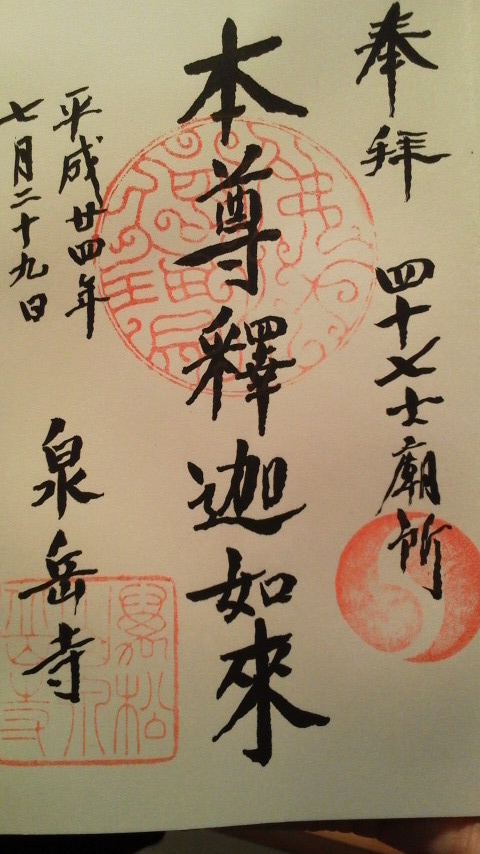 奉拝
四十七士廟所
本尊釋迦如來
平成廿四年
七月二十九日
泉岳寺